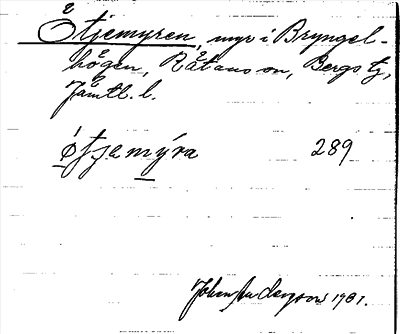 Åtjemyren, myr i Bryngel-
högen, Rätans sn, Bergs tg,
Jämtl. l.
åtjemýra 289
Johan Andersson 1931.